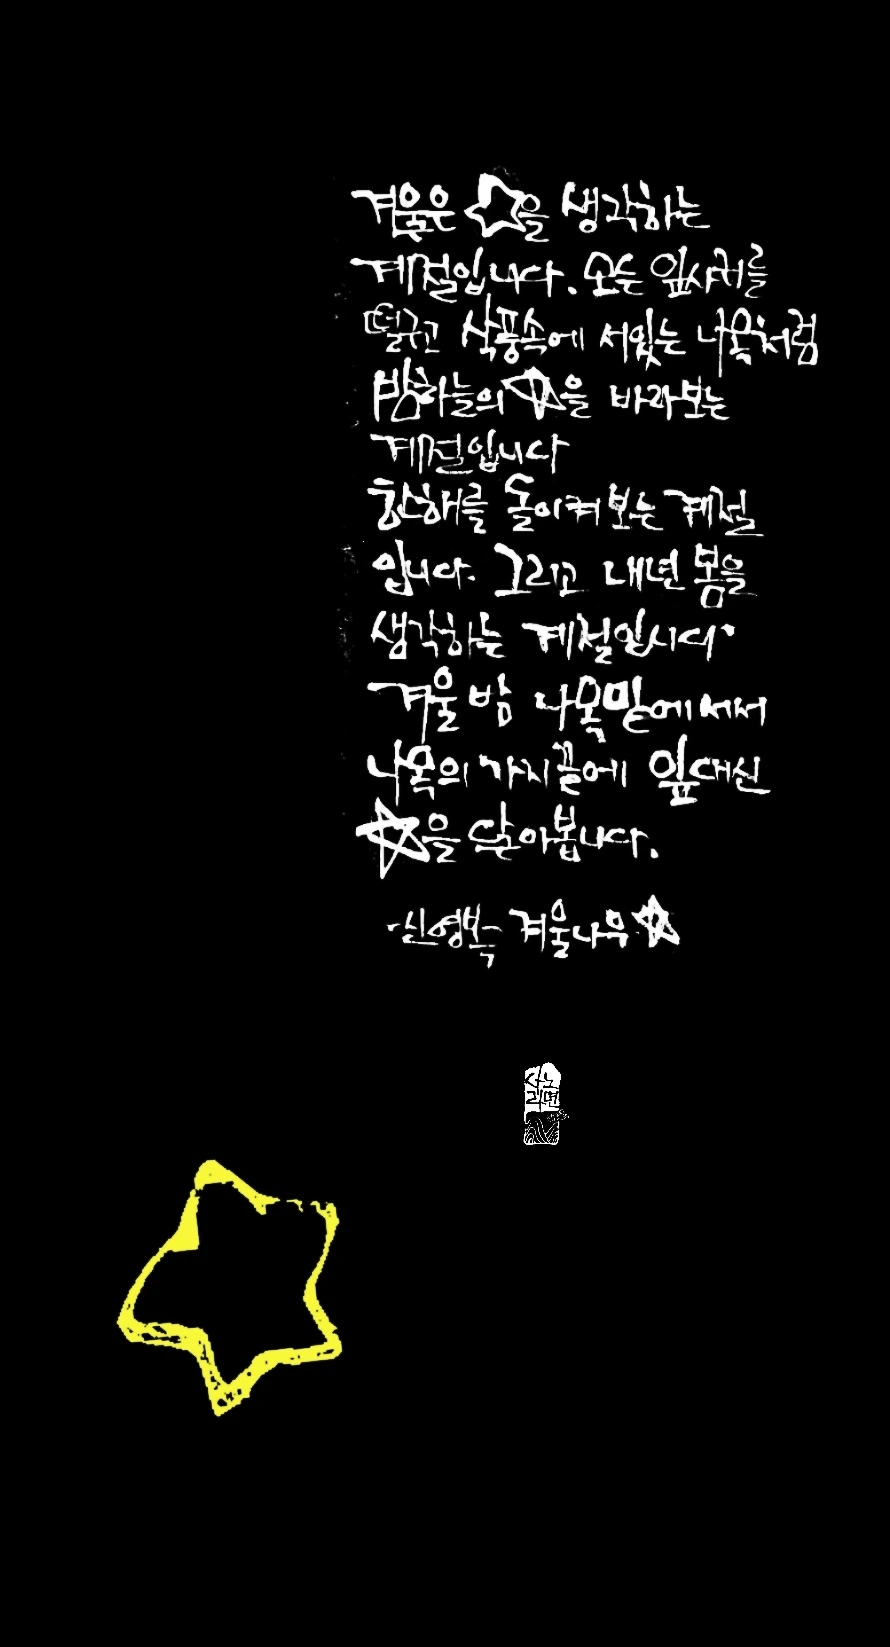 겨울은 ☆을 생각하는
계절입니다. 모든 잎사귀를
떨구고 삭풍속에 서있는 나목처럼
밤하늘의 ☆을 바라보는
계절입니다
한해를 돌이켜보는 계절
입니다. 그리고 내년 봄을
생각하는 계절입니다.
겨울밤 나목밑에 서서
나목의 가지끝에 잎대신
☆을 달아봅니다.
-신영복 겨울나무☆
사노
라면